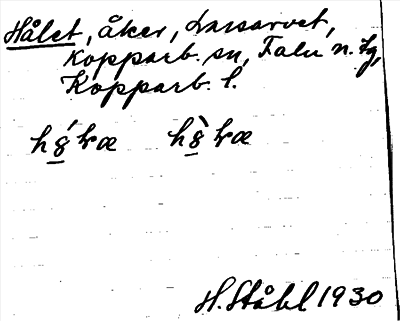 Hålet, åker, Lassarvet,
Kopparb. sn, Falu n. tg,
Kopparb. l.
H. Ståhl 1930